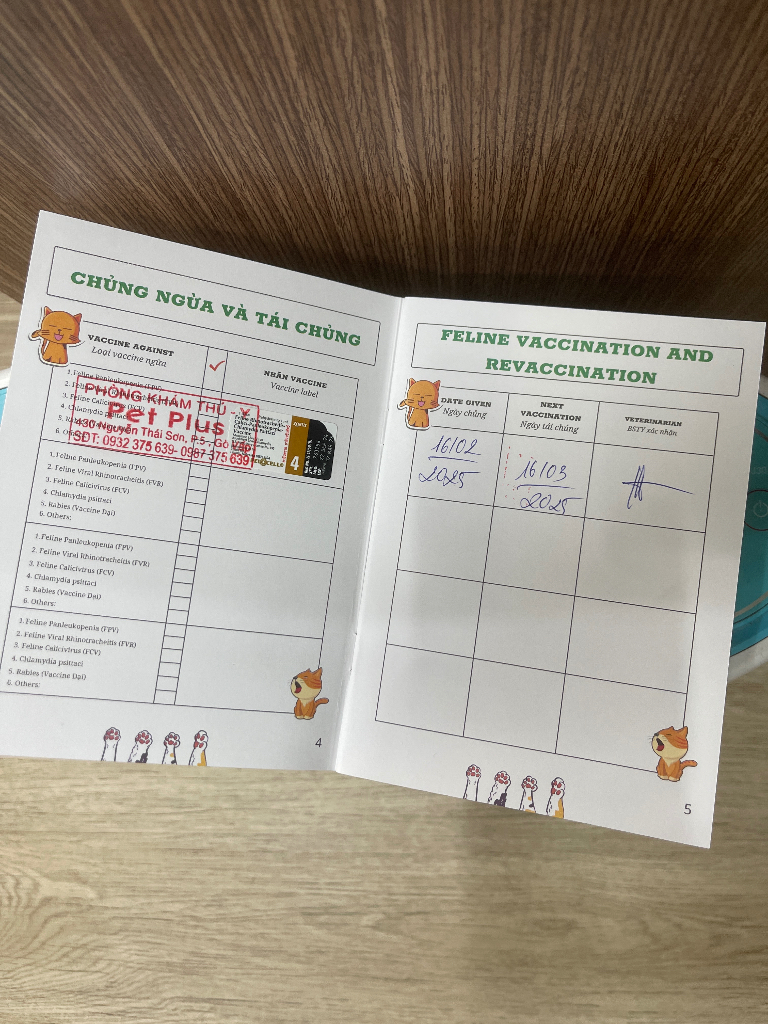 CHỦNG NGỪA VÀ TÁI CHỦNG
VACCINE AGAINST
Loại vaccine ngừa
NHÃN VACCINE
Vaccine label
1. Feline Panleukopenia (FPV)
3. Feline Calicivirus (FCV)
4. Chlamydia psittaci
PHÒNG KHÁM THÚ - Y
PEt Plus
430 Nguyễn Thái Sơn, P.5 - Gò Vấp
SĐT: 0932 375 639- 0987 375 639
4
1. Feline Panleukopenia (FPV)
2. Feline Viral Rhinotracheitis (FVR)
3. Feline Calicivirus (FCV)
4. Chlamydia psittaci
5. Rabies (Vaccine Dại)
6. Others:
1. Feline Panleukopenia (FPV)
2. Feline Viral Rhinotracheitis (FVR)
3. Feline Calicivirus (FCV)
4. Chlamydia psittaci
5. Rabies (Vaccine Dại)
6. Others:
1. Feline Panleukopenia (FPV)
2. Feline Viral Rhinotracheitis (FVR)
3. Feline Calicivirus (FCV)
4. Chlamydia psittaci
5. Rabies (Vaccine Dại)
6. Others:
4
FELINE VACCINATION AND
REVACCINATION
DATE GIVEN
Ngày chủng
NEXT
VACCINATION
Ngày tái chủng
VETERINARIAN
BSTY xác nhận
16/02
2025
16/03
2025
5